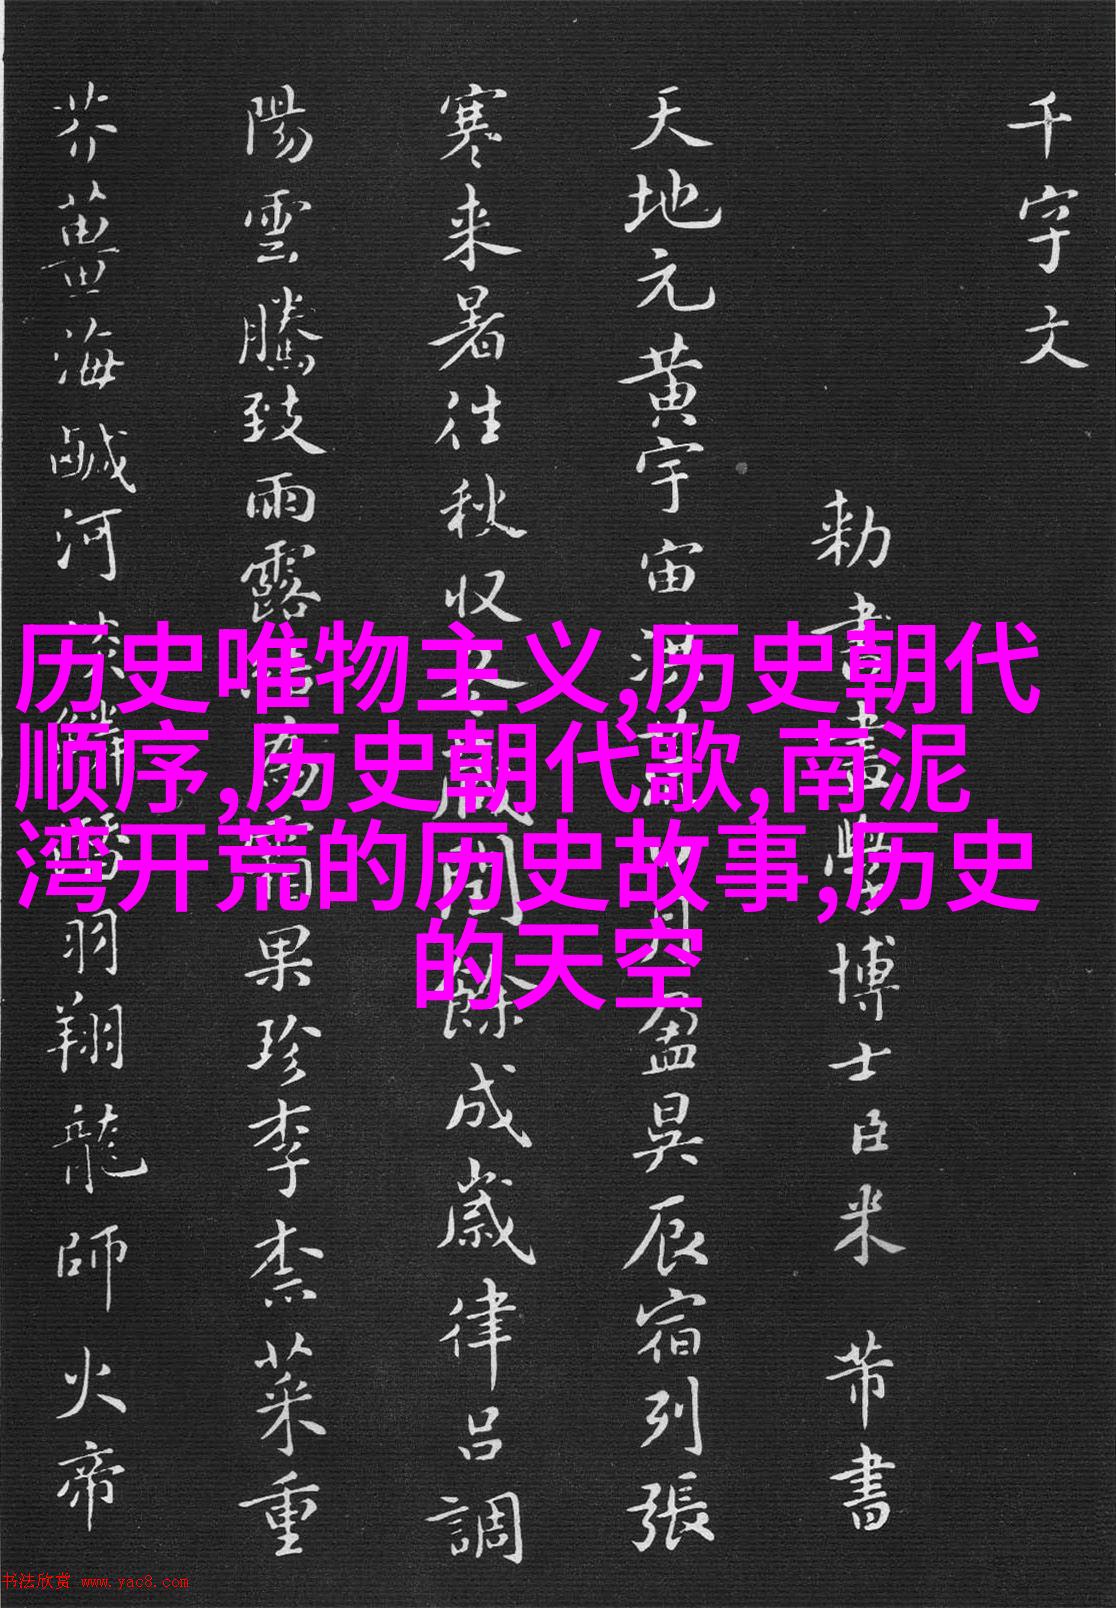 千字文
勅書畫學博士臣米芾書
天地元黄宇宙洪荒日月盈昃辰宿列張
寒来暑往秋收冬藏閏餘成歲律吕調
陽雲騰致雨露結為霜果珍李柰菜重
芥薑海鹹河淡鱗潛羽翔龍師火帝
历史唯物主义,历史朝代
顺序,历史朝代歌,南泥
湾开荒的历史故事,历史
的天空
书法欣赏 www.yac8.com